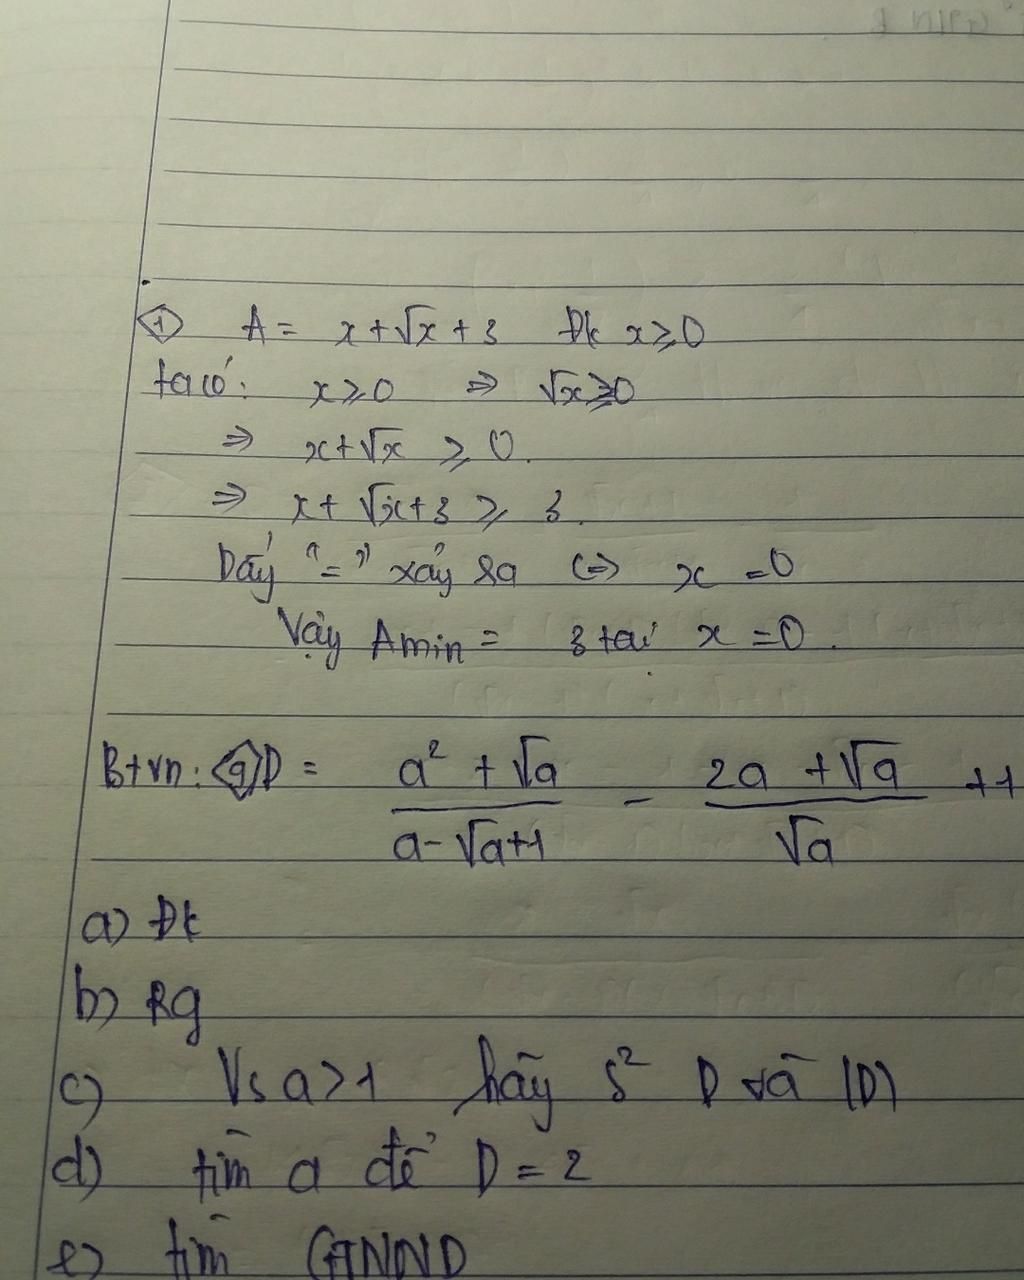 ① A = x + √x + 3 Đk x ⩾ 0
ta có: x ⩾ 0 ⇒ √x ⩾ 0
⇒ x + √x ⩾ 0.
⇒ x + √x + 3 ⩾ 3.
Dấu "=" xảy ra ⇔ x = 0
Vậy Amin = 3 tại x = 0.
Btvn: ⟨9⟩ D = (a² + √a)/(a - √a + 1) - (2a + √a)/√a + 1
a) Đk
b) Rg
c) Vs a > 1 hãy s² D và |D|
d) tìm a để D = 2
e) tìm GTNND